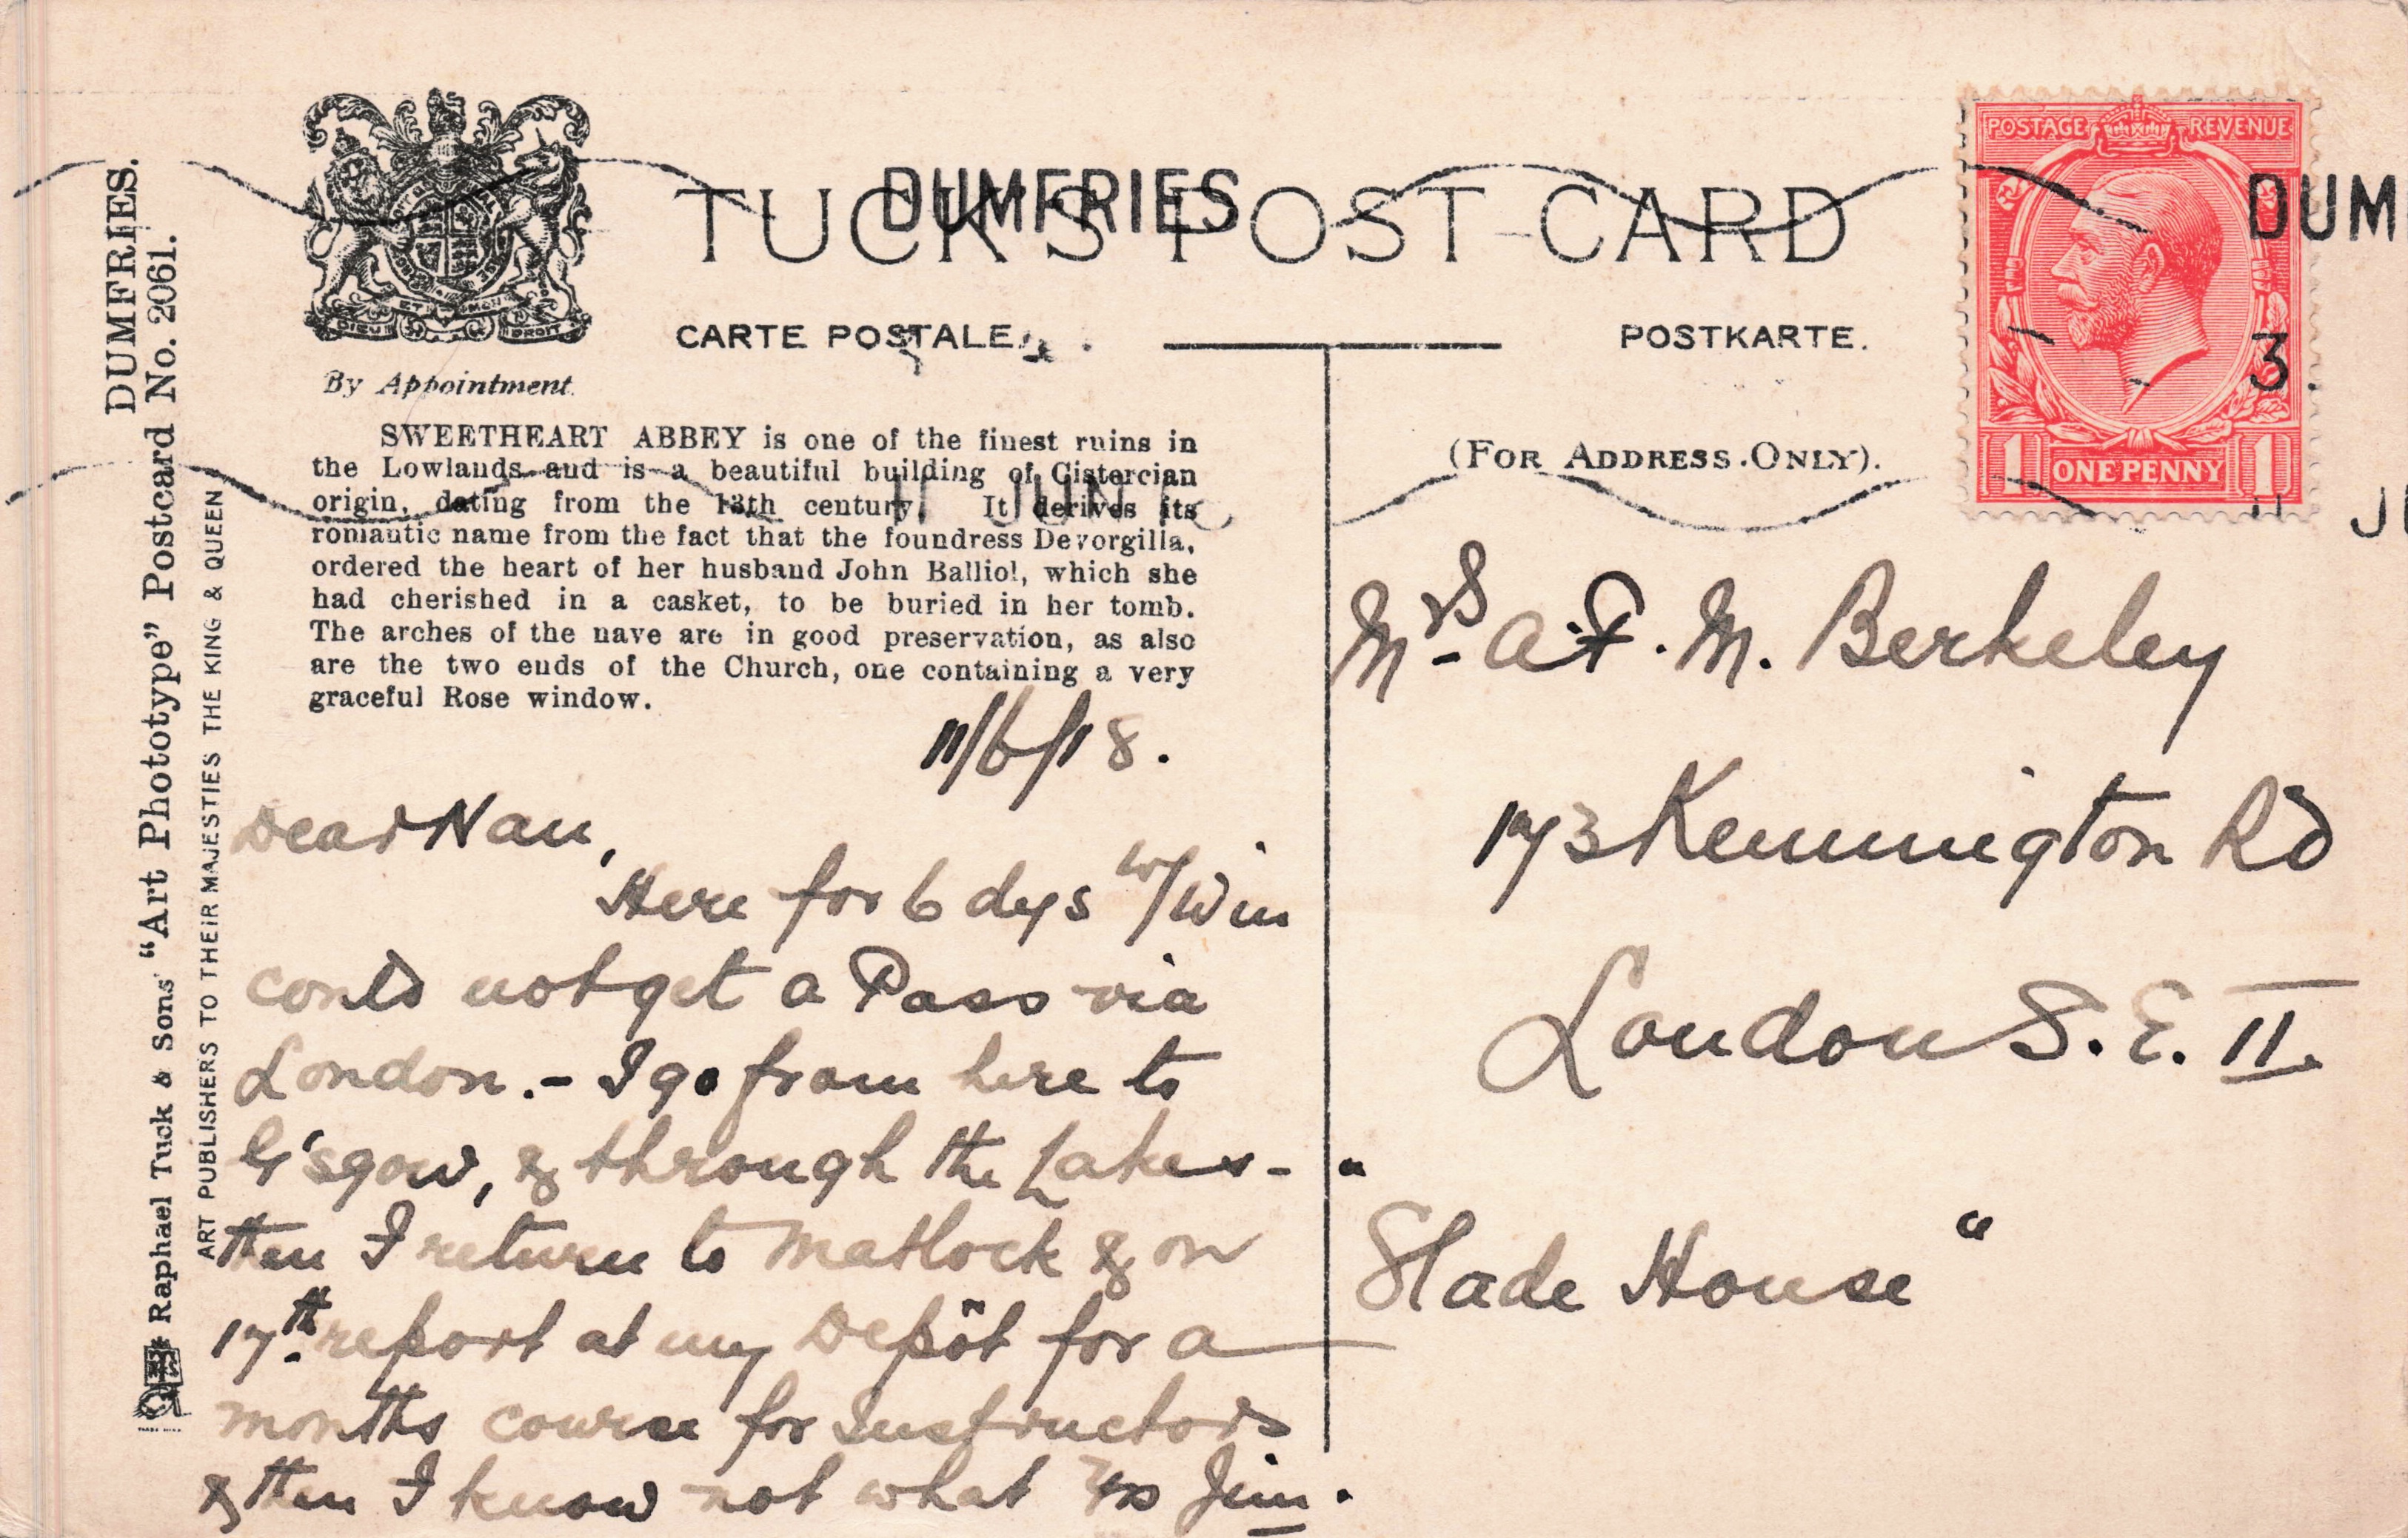 DUMFRIES.
Raphael Tuck & Sons' "Art Phototype" Postcard No. 2061.
ART PUBLISHERS TO THEIR MAJESTIES THE KING & QUEEN
DIEU ET MON DROIT
By Appointment.
TUCK'S POST CARD
DUMFRIES
CARTE POSTALE.
POSTKARTE.
(FOR ADDRESS ONLY).
11 JUN 18
SWEETHEART ABBEY is one of the finest ruins in
the Lowlands and is a beautiful building of Cistercian
origin, dating from the 13th century. It derives its
romantic name from the fact that the foundress Devorgilla,
ordered the heart of her husband John Balliol, which she
had cherished in a casket, to be buried in her tomb.
The arches of the nave are in good preservation, as also
are the two ends of the Church, one containing a very
graceful Rose window.
11/6/18.
Dear Nan,
Here for 6 dys w/ Win
could not get a Pass via
London. - I go from here to
G'sgow, & through the Lakes -
then I return to Matlock & on
17th report at my Depôt for a
months course for Instructors
& then I know not what Jim.
POSTAGE REVENUE
1 ONE PENNY 1
DUM
3.
11 JU
Mrs A. F. M. Berkeley
173 Kennington Rd
London S. E. 11.
"Slade House"